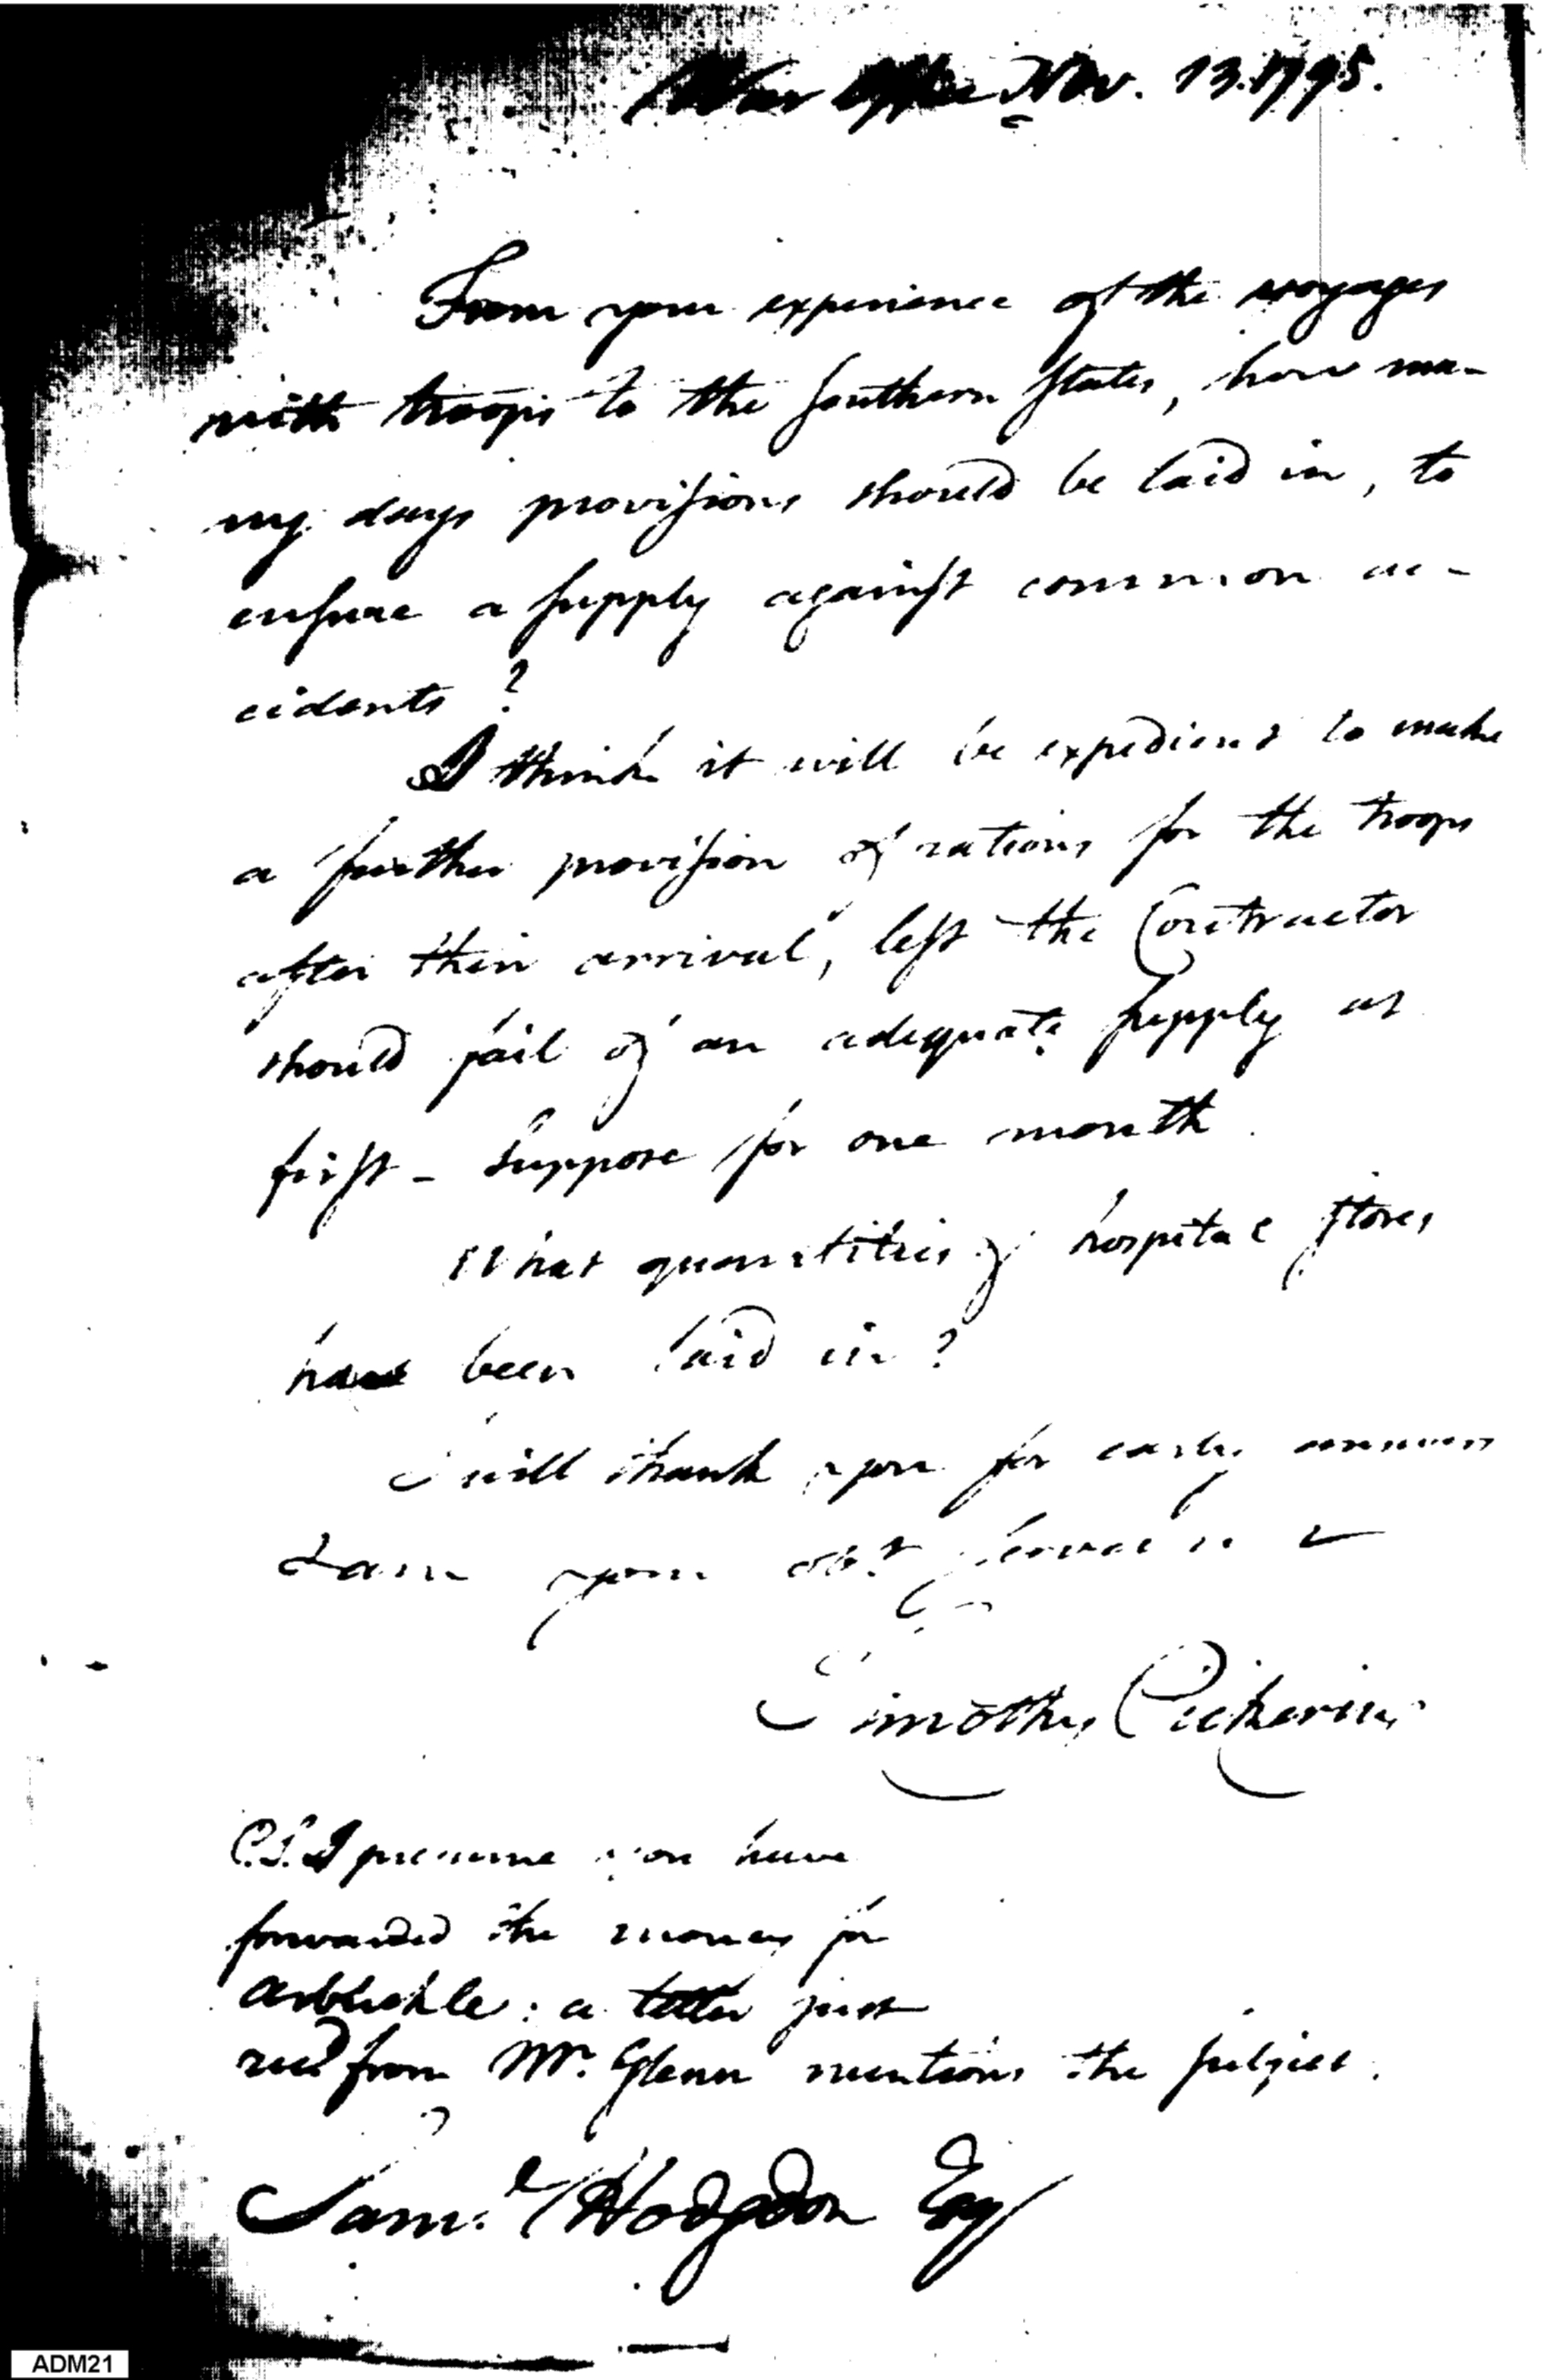 War Office Nov. 13. 1795.
From your experience of the voyages
with troops to the southern states, how ma-
ny days provisions should be laid in, to
ensure a supply against common ac-
cidents?
I think it will be expedient to make
a further provision of rations for the troops
after their arrival, lest the Contractor
should fail of an adequate supply at
first - suppose for one month.
What quantities of hospital stores
have been laid in?
I will thank you for early answers
I am your obt. servant
Timothy Pickering
P.S. I presume you have
forwarded the money for
Arbuckle: a letter just
recd from Mr. Glenn mentions the subject.
Saml. Hodgdon Esq
ADM21